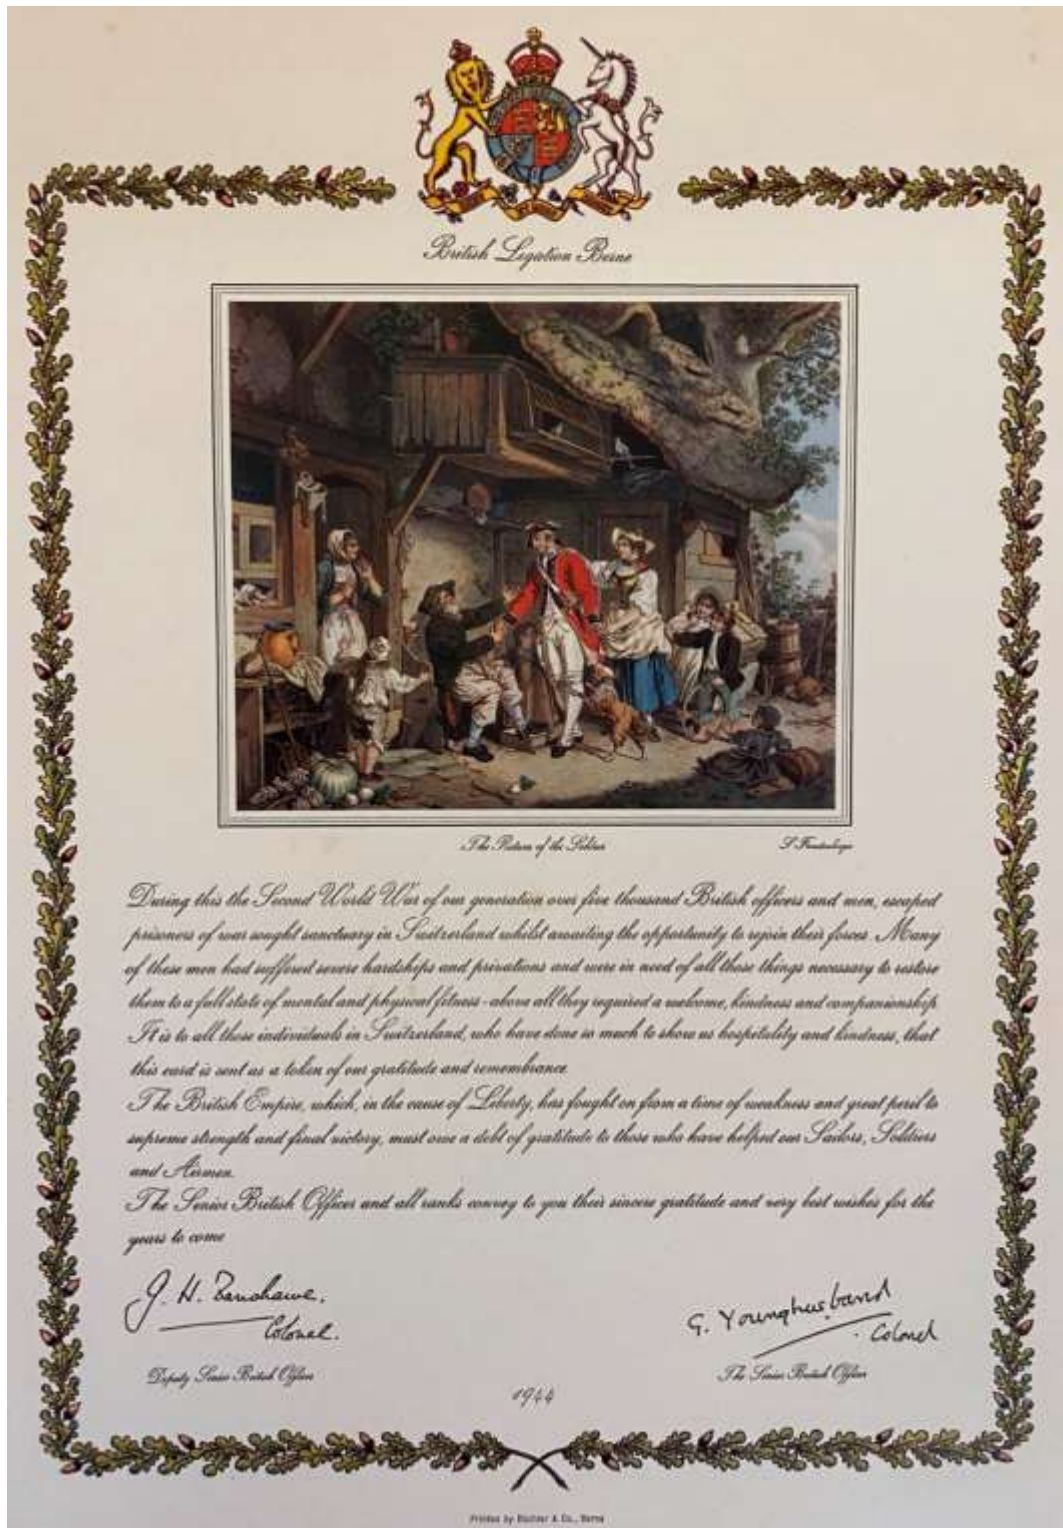 British Legation Berne
The Return of the Soldier
S. Freudenberger
During this the Second World War of our generation over five thousand British officers and men, escaped
prisoners of war sought sanctuary in Switzerland whilst awaiting the opportunity to rejoin their forces. Many
of these men had suffered severe hardships and privations and were in need of all those things necessary to restore
them to a full state of mental and physical fitness - above all they required a welcome, kindness and companionship
It is to all those individuals in Switzerland, who have done so much to show us hospitality and kindness, that
this card is sent as a token of our gratitude and remembrance.
The British Empire, which, in the cause of Liberty, has fought on from a time of weakness and great peril to
supreme strength and final victory, must owe a debt of gratitude to those who have helped our Sailors, Soldiers
and Airmen.
The Senior British Officer and all ranks convey to you their sincere gratitude and very best wishes for the
years to come
J. H.
Colonel.
G. Younghusband
Colonel
Deputy Senior British Officer
The Senior British Officer
1944
Printed by Büchler & Co., Berne